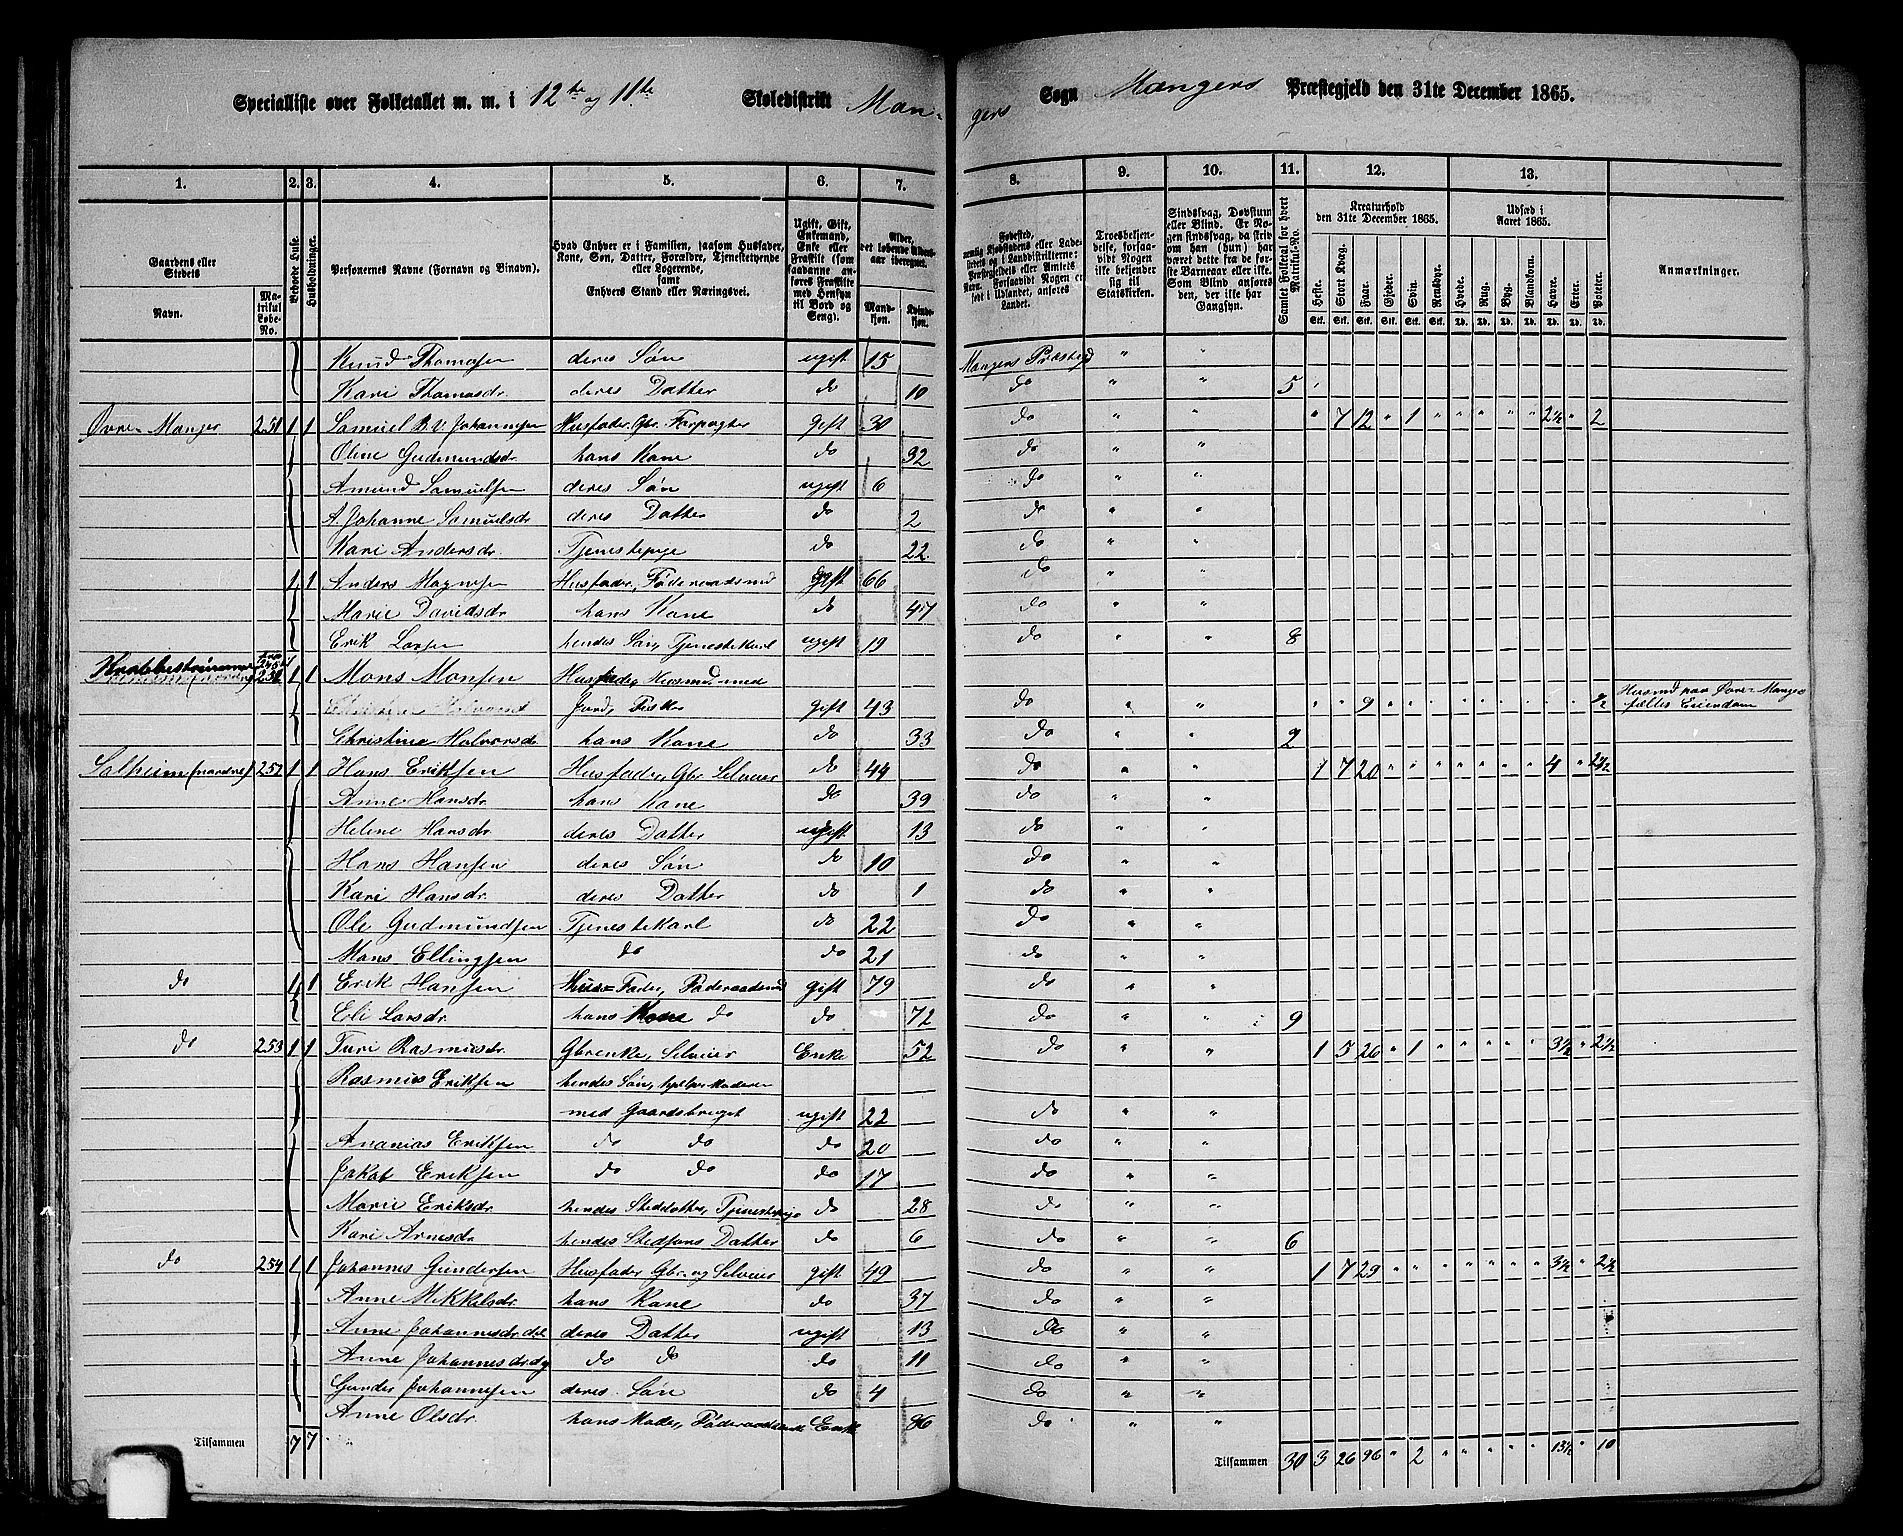 Specialliste over Folketallet m. m. i 12te og 11te Skoledistrikt Man-
gers Sogn Mangers Præstegjeld den 31te December 1865.
1. 2. 3. 4. 5. 6. 7. 8. 9. 10. 11. 12. 13.
Gaardens eller Stedets
Navn.
Matrikul Løbe-No.
Beboede Huse.
Husholdninger.
Personernes Navne (Fornavn og Binavn).
Hvad Enhver er i Familien, (saasom Husfader, Kone, Søn, Datter, Forældre, Tjenestetyende eller Logerende, samt Enhvers Stand eller Næringsvei.
Ugift, Gift, Enkemand, Enke eller Fraskilt (som saadanne anføres Fraskilte med Hensyn til Bord og Seng).
Alder, det løbende Alders-aar iberegnet.
Mandkjøn. Kvindekjøn.
Fødested,
Troesbekjendelse, forsaavidt Nogen ikke bekjender sig til Statskirken.
Sindssvag, Døvstum eller Blind. Er Nogen sindssvag, da skriv om han (hun) har været dette fra de første Barneaar eller ikke. Som Blind anføres den, der ikke har Gangsyn.
Samlet Folketal for hvert Matrikul-No.
Kreaturhold den 31te December 1865.
Heste. Stort Kvæg. Faar. Gjeder. Svin. Rensdyr.
Udsæd i Aaret 1865.
Hvede. Rug. Byg. Blandkorn. Havre. Erter. Poteter.
Anmærkninger.
Knud Thomasen deres Søn ugift 15 Mangers Præstegjd " "
Kari Thomasdr. deres Datter do 10 do " " 5
Øvre Manger 251 1 1 Samuel B. V. Johannesen Husfader, Gbr. Forpagter gift 30 do " " " 7 12 " 1 " " " " " 2½ " 2
Oline Gudmundsdr. hans Kone do 32 do " "
Amund Samuelsen deres Søn ugift 6 do " "
A. Johanne Samuelsdr. deres Datter do 2 do " "
Kari Andersdr. Tjenestepige do 22 do " "
1 1 Anders Magnesen Husfader, Føderaadsmd gift 66 do " "
Marie Davidsdr. hans Kone do 47 do " "
Erik Larsen hendes Søn, Tjenestekarl ugift 19 do " " 8
251 1 1 Mons Monsen Husfader, Husmd. med
Jord, Fisker gift 43 do " " " " 9 " " " " " " " " " ½ Husmd paa Øvre Manger
fælles Eiendom
Christine Halvorsdr. hans Kone do 33 do " " 2
Solheim (nordre) 252 1 1 Hans Eriksen Husfader, Gbr Selveier do 44 do " " 1 7 20 " " " " " " " 4 " 2½
Anne Hansdr. hans Kone do 39 do " "
Helene Hansdr. deres Datter ugift 13 do " "
Hans Hansen deres Søn do 10 do " "
Kari Hansdr. deres Datter do 1 do " "
Ole Gudmundsen Tjenestekarl do 22 do " "
Mons Ellingsen do do 21 do " "
do 1 1 Erik Hansen Hus-Fader, Føderaadsmd gift 79 do " "
Eli Larsdr. hans Kone do do 72 do " " 9
do 253 1 1 Turi Rasmusdr. Gbrenke, Selveier Enke 52 do " " 1 5 26 " 1 " " " " " 3½ " 2½
Rasmus Eriksen hendes Søn, hjelper Moderen
med Gaardsbruget ugift 22 do " "
Ananias Eriksen do do do 20 do " "
Jakob Eriksen do do do 17 do " "
Marie Eriksdr. hendes Steddatter, Tjenestepige do 28 do " "
Kari Arnesdr. hendes Stedsøns Datter do 6 do " " 6
do 254 1 1 Johannes Gundersen Husfader Gbr. og Selveier gift 49 do " " 1 7 29 " " " " " " " 3½ " 2½
Anne Mikkelsdr. hans Kone do 37 do " "
Anne Johannesdr. deres Datter ugift 13 do " "
Anne Johannesdr. do do do 11 do " "
Gunder Johannesen deres Søn do 4 do " "
Anne Olsdr. hans Moder, Enke do " "
Tilsammen 7 7
Tilsammen 30 3 26 96 " 2 " " " " " 13½ " 10